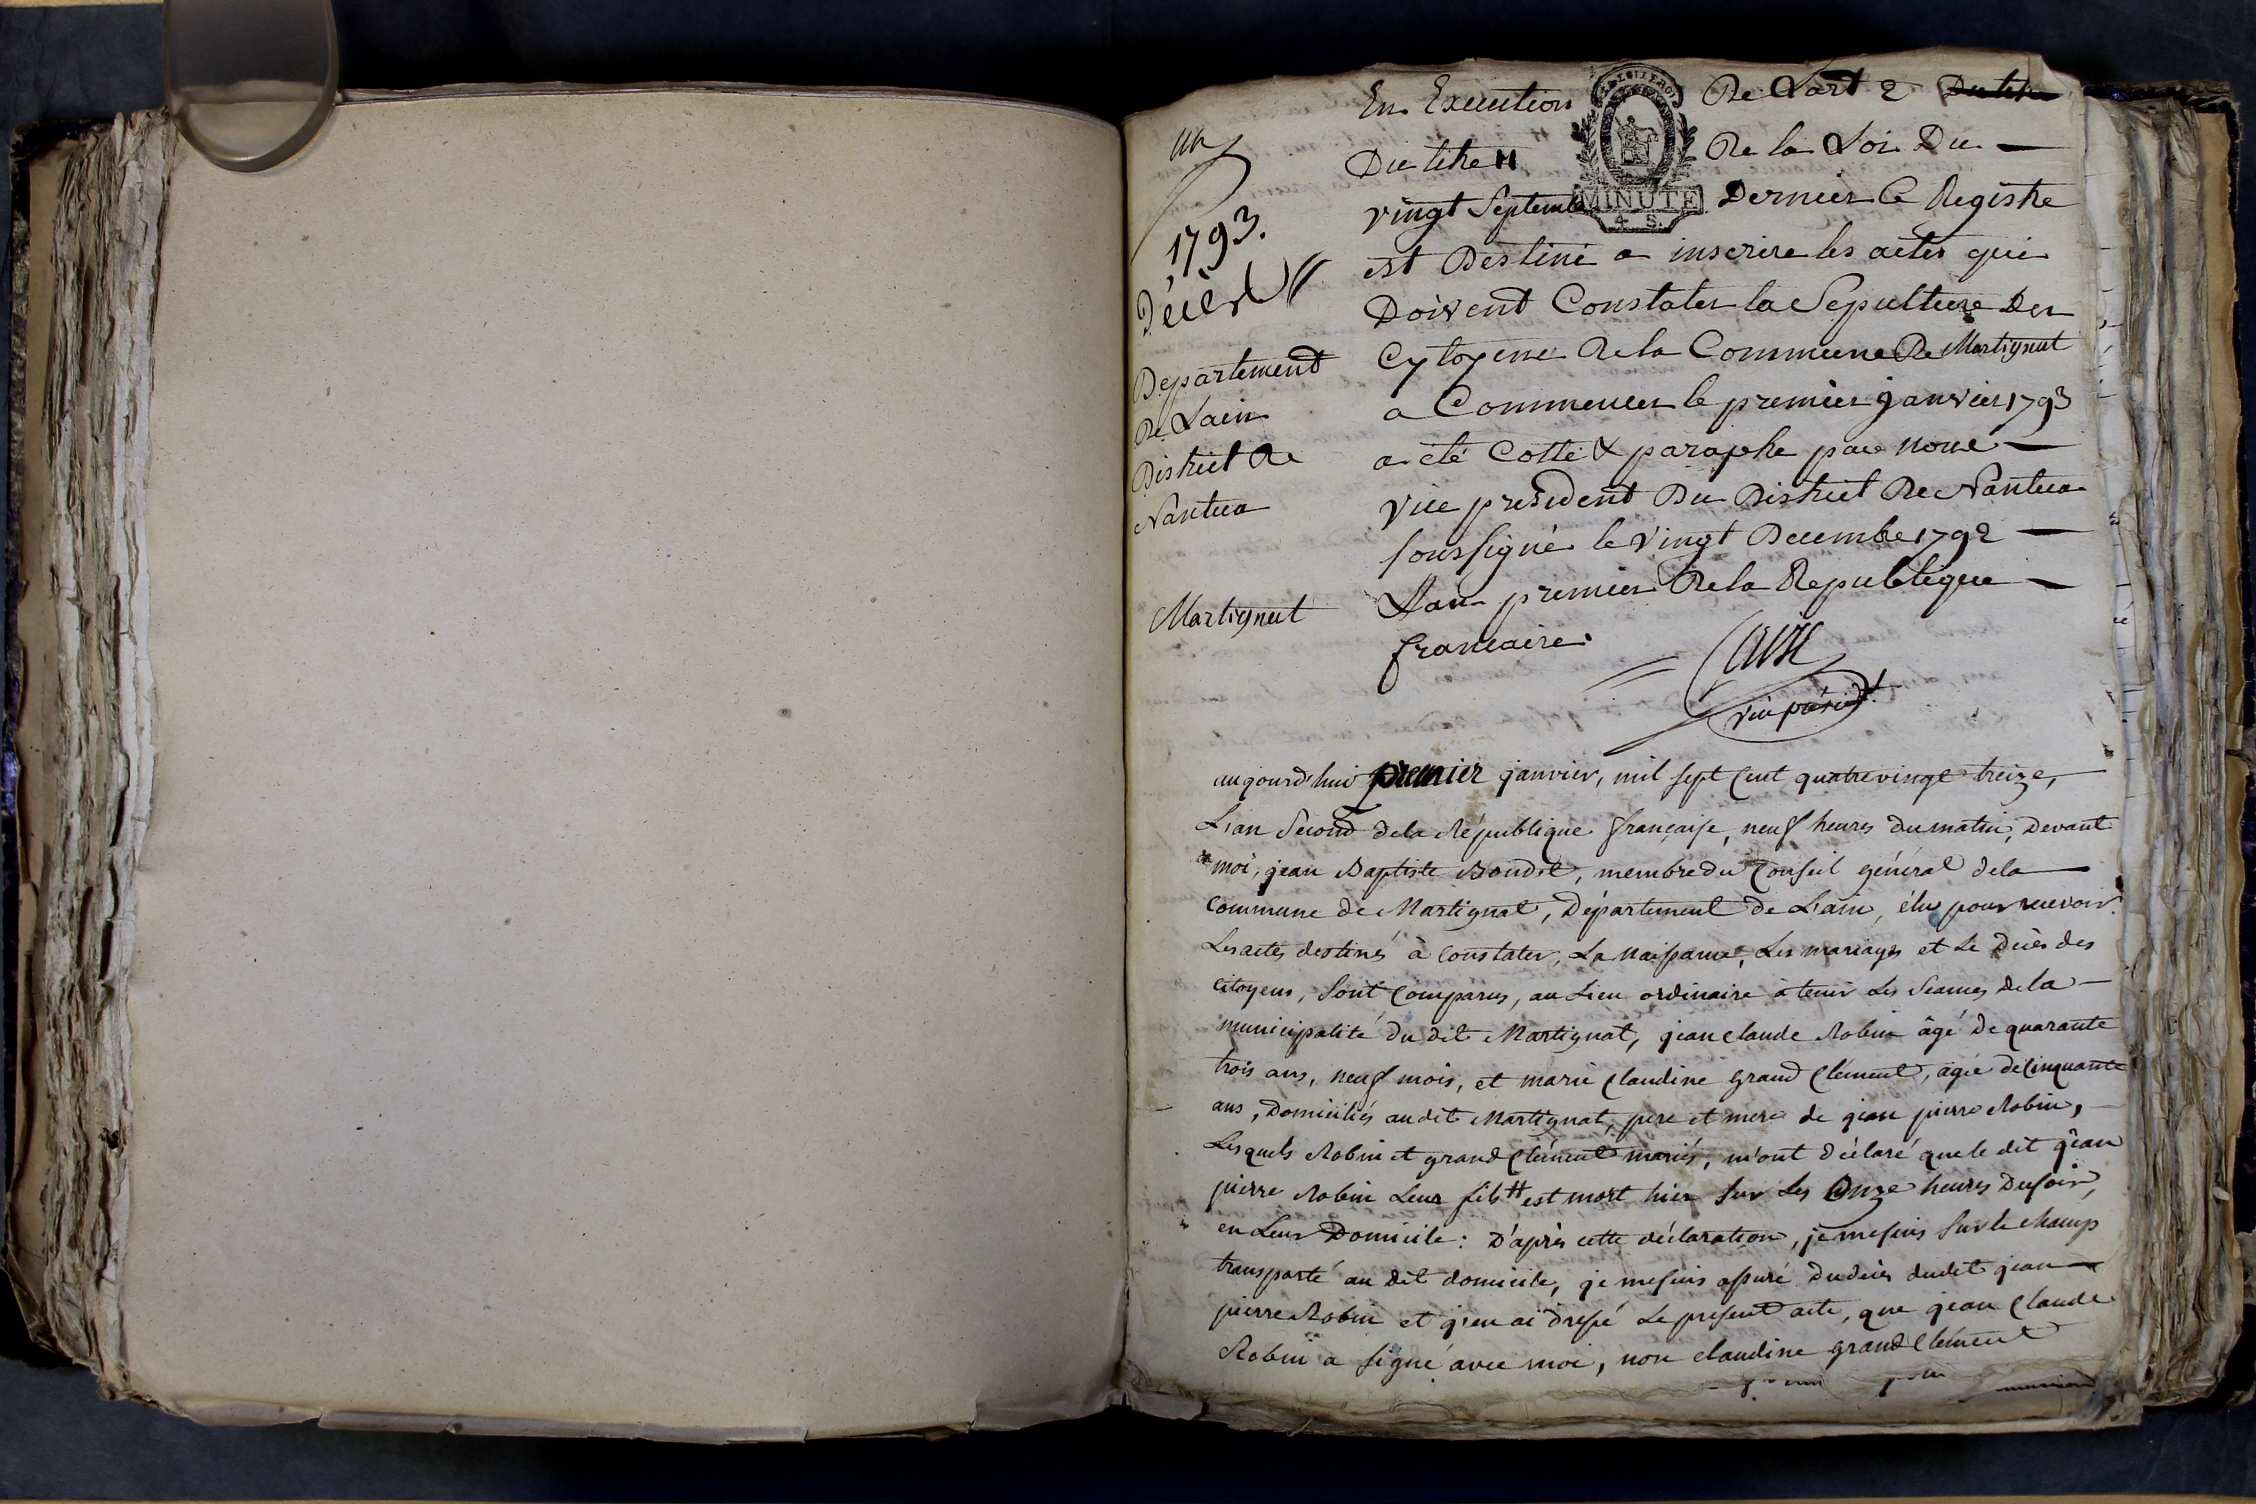 un
1793.
Décès
Departement
De Lain
District De
Nantua
Martignat
En Execution De Lart 2 Du titre
Du titre II De la Loi Du
vingt Septembre Dernier Ce Registre
est Destiné a inscrire les actes qui
Doivent Constater la Sepulture Des
Cytoyens De la Commune De Martignat
a Commencer le premier janvier 1793
a été Cotté & paraphe par nous
Vice president Du District De Nantua
soussigné le vingt Decembre 1792
Lan premier De la Republique
francaise.
vice présidt.
MINUTE
4 S.
aujourd'hui premier janvier, mil sept Cent quatrevingt treize,
L'an Second dela République française, neuf heures du matin, Devant
moi, jean Baptiste Bondet, membre du Conseil général dela
commune de Martignat, Département de L'ain, élu pour recevoir
Les actes destinés à constater, La Naissance, Les mariages et Le Décès des
citoyens, sont Comparus, au Lieu ordinaire à tenir Les Séances dela
municipalité du dit Martignat, jean claude Robin âgé de quarante
trois ans, neuf mois, et marie Claudine grand Clément, agée de Cinquante
ans, Domiciliés au dit Martignat, pere et mere de jean pierre Robin,
Lesquels Robin et grand Clément mariés, m'ont déclaré que le dit jean
pierre Robin Leur fils H est mort hier sur Les Onze heures Du soir,
en Leur Domicile : D'après cette déclaration, je me suis sur le champ
transporté au dit domicile, je me suis assuré du décès dudit jean
pierre Robin et j'en ai dressé Le présent acte, que jean Claude
Robin a signé avec moi, non claudine grand Clément